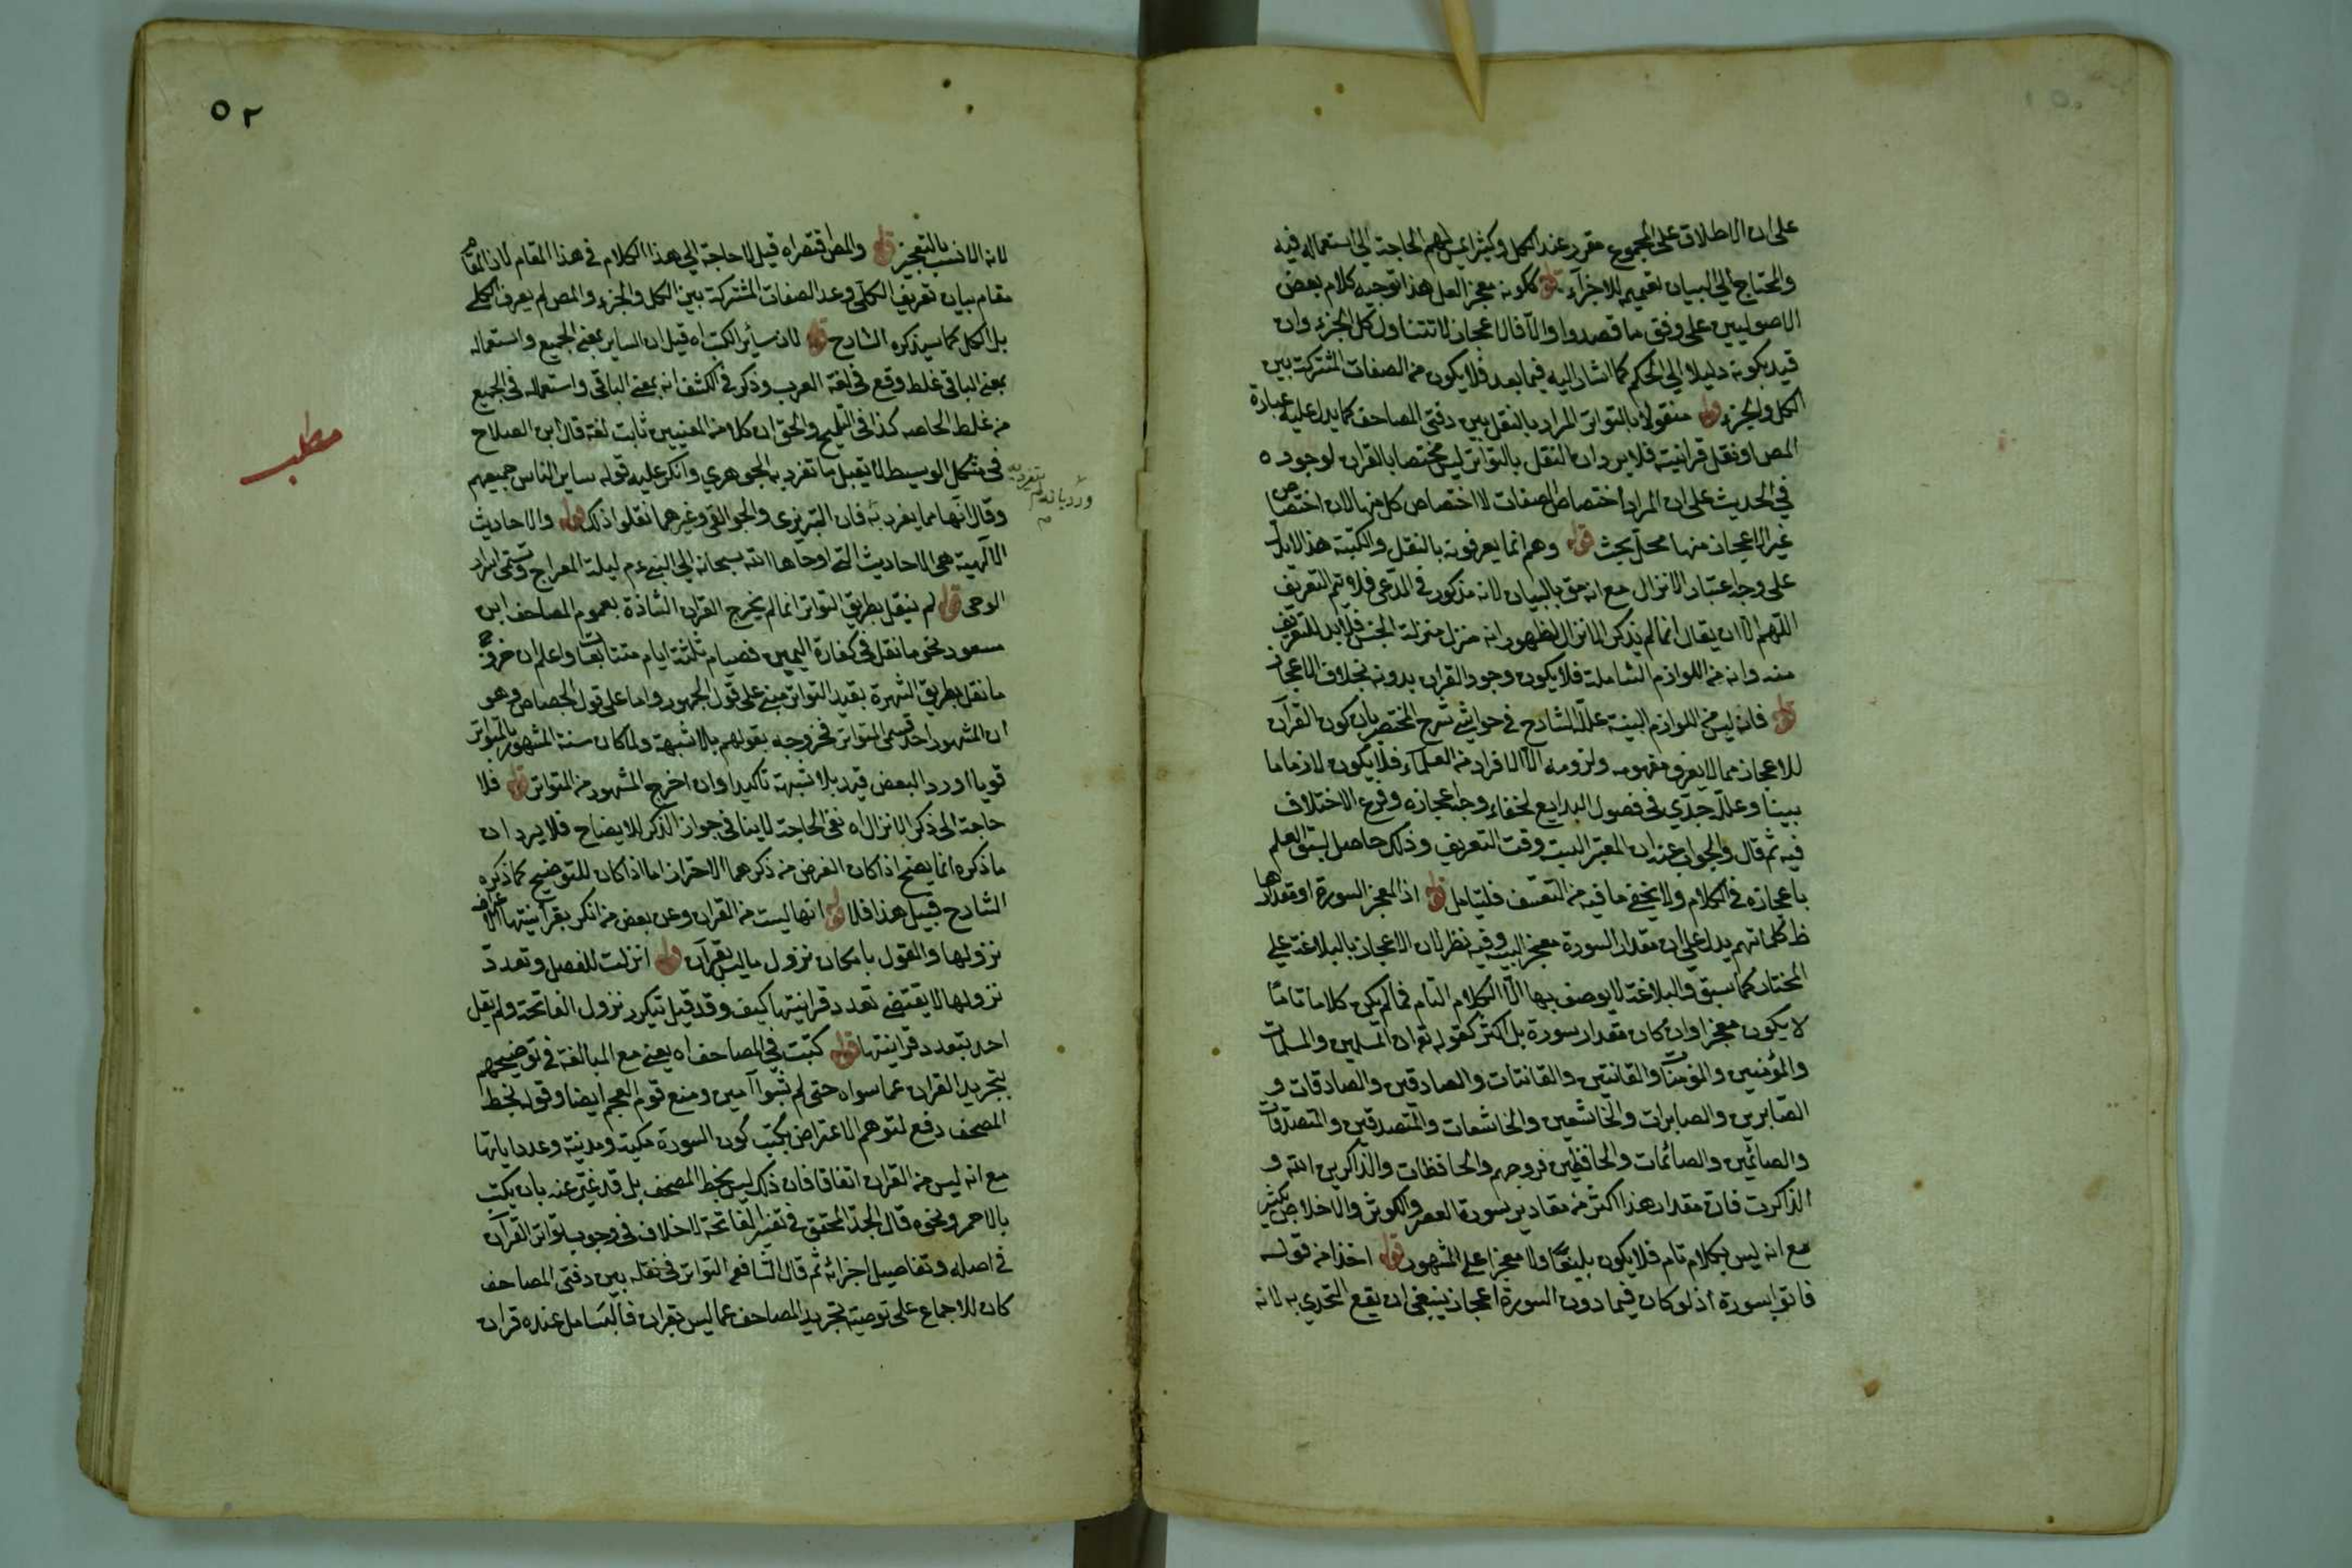 على ان الاطلاق على المجموع مقرر عند الكل وكثيرا يمس لهم الحاجة الى استعماله فيه
والمحتاج الى البيان تعميمه للاجزاء قوله ككونه معجزا لعل هذا توجيه كلام بعض
الاصوليين على وفق ما قصدوا والا فالاعجاز لا تتناول كل الجزء وان
قيد بكونه دليلا الى الحكم كما اشار اليه فيما بعد فلا يكون من الصفات المشتركة بين
الكل والجزء قوله منقولا بالتواتر المراد بالنقل بين دفتى المصاحف كما يدل عليه عبارة
المص او نقل قرانيته فلا يرد ان النقل بالتواتر ليس مختصا بالقران لوجوده
في الحديث على ان المراد اختصاص الصفات لا اختصاص كل منها لان اختصاص
غير الاعجاز منها محل بحث قوله وهم انما يعرفونه بالنقل والكتبة هذا لا يدل
على وجه اعتبار الانزال مع انه مق بالبيان لانه مذكور في المدعى فلا يتم التعريف
اللهم الا ان يقال انما لم يذكر الانزال لظهور انه منزل منزلة الجنس فلا بد للتعريف
منه وانه من اللوازم الشاملة فلا يكون وجود القران بدونه بخلاف الاعجاز
قوله فانه ليس من اللوازم البينة علله الشارح في حواشي شرح المختصر بان كون القرآن
للاعجاز مما لا يعرف مفهومه ولزومه الا الافراد من العلماء فلا يكون لازما ما
بينا وعلله جدي في فصول البدايع لخفاء وجه اعجازه وفرع الاختلاف
فيه ثم قال والجواب عنه ان المعتبر البينة وقت التعريف وذلك حاصل لسبق العلم
باعجازه في الكلام ولا يخفى ما فيه من التعسف فليتامل قوله اذ المعجز السورة او مقدارها
ظ كلماتهم يدل على ان مقدار السورة معجز البتة وفيه نظر لان الاعجاز بالبلاغة على
المختار كما سبق والبلاغة لا يوصف بها الا الكلام التام فما لم يكن كلاما تاما
لا يكون معجزا وان كان مقدار سورة بل اكثر كقوله تع ان المسلمين والمسلمات
والمؤمنين والمؤمنات والقانتين والقانتات والصادقين والصادقات و
الصابرين والصابرات والخاشعين والخاشعات والمتصدقين والمتصدقات
والصائمين والصائمات والحافظين فروجهم والحافظات والذاكرين الله و
الذاكرت فان مقدار هذا اكثر من مقادير سورة العصر والكوثر والاخلاص بكثير
مع انه ليس بكلام تام فلا يكون بليغا ولا معجزا على المشهور قوله اخذا من قوله
فاتوا بسورة اذ لو كان فيما دون السورة اعجاز ينبغي ان يقع التحدي به لانه
٥٢
لانه الانسب بالتعجيز قوله والمص اقتصر اه قيل لا حاجة الى هذا الكلام في هذا المقام لان المقام
مقام بيان تعريف الكلي وعد الصفات المشتركة بين الكل والجزء والمص لم يعرف الكلي
بل الكل كما سيذكره الشارح قوله لان سائر الكتب اه قيل ان الساير بمعنى الجميع واستعماله
بمعنى الباقي غلط وقع في لغة العرب وذكر في الكشف انه بمعنى الباقي واستعماله في الجميع
من غلط الخاصه كذا في التلميح والحق ان كلا من المعنيين ثابت لغة قال ابن الصلاح
في مشكل الوسيط لا تقبل ما تفرد به الجوهري وانكر عليه قوله ساير الناس جميعهم
وقال انها مما ينفرد به فان التبريزى والجواليقى وغيرهما نقلوا ذلك قوله والاحاديث
ورد بانه لم يتفرد به م
مطلب
الالهية هى الاحاديث التي اوحاها الله سبحانه الى النبي ع م ليلة المعراج وتسمى اسرار
الوحى قوله لم ينقل بطريق التواتر انما لم يخرج القران الشاذة بعموم المصاحف ابن
مسعود نحو ما نقل في كفارة اليمين فصيام ثلثة ايام متتابعات واعلم ان خروج
ما نقل بطريق الشهرة بقيد التواتر مبنى على قول الجمهور واما على قول الجصاص وهو
ان المشهور احد قسمى المتواتر فخروجه بقولهم بلا شبهة ولما كان سنة المشهور بالمتواتر
قويا اورد البعض قيد بلا شبهة تاكيدا وان اخرج المشهور من المتواتر قوله فلا
حاجة الى ذكر الانزال اه نفى الحاجة لا ينافى جواز الذكر للايضاح فلا يرد ان
ما ذكره انما يصح اذا كان الغرض من ذكرهما الاحتراز اما اذا كان للتوضيح كما ذكره
الشارح قبيل هذا فلا قوله انها ليست من القران وعن بعض من انكر بقرآنيتها
نزولها والقول بامكان نزول ما ليس بقرآن قوله انزلت للفصل وتعدد
نزولها لا يقتضى تعدد قرانيتها كيف وقد قيل بتكرر نزول الفاتحة ولم يقل
احد بتعدد قرانيتها قوله كتبت في المصاحف اه يعنى مع المبالغة في توضيحهم
بتجريد القران عما سواه حتى لم يثبتوا آمين ومنع قوم العجم ايضا وقوله بخط
المصحف دفع لتوهم الاعتراض بكتب كون السورة مكية ومدنية وعدد اياتها
مع انه ليس من القران اتفاقا فان ذلك ليس بخط المصحف بل قد غير عنه بان يكتب
بالاحمر ونحوه قال الجد المحقق في تفسير الفاتحة لا خلاف في وجوب تواتر القرآن
في اصله وتفاصيل اجزائه ثم قال الشافعي التواتر في نقله بين دفتى المصاحف
كان للاجماع على توصية تجريد المصاحف عما ليس بقران فالتسامل عنده قران